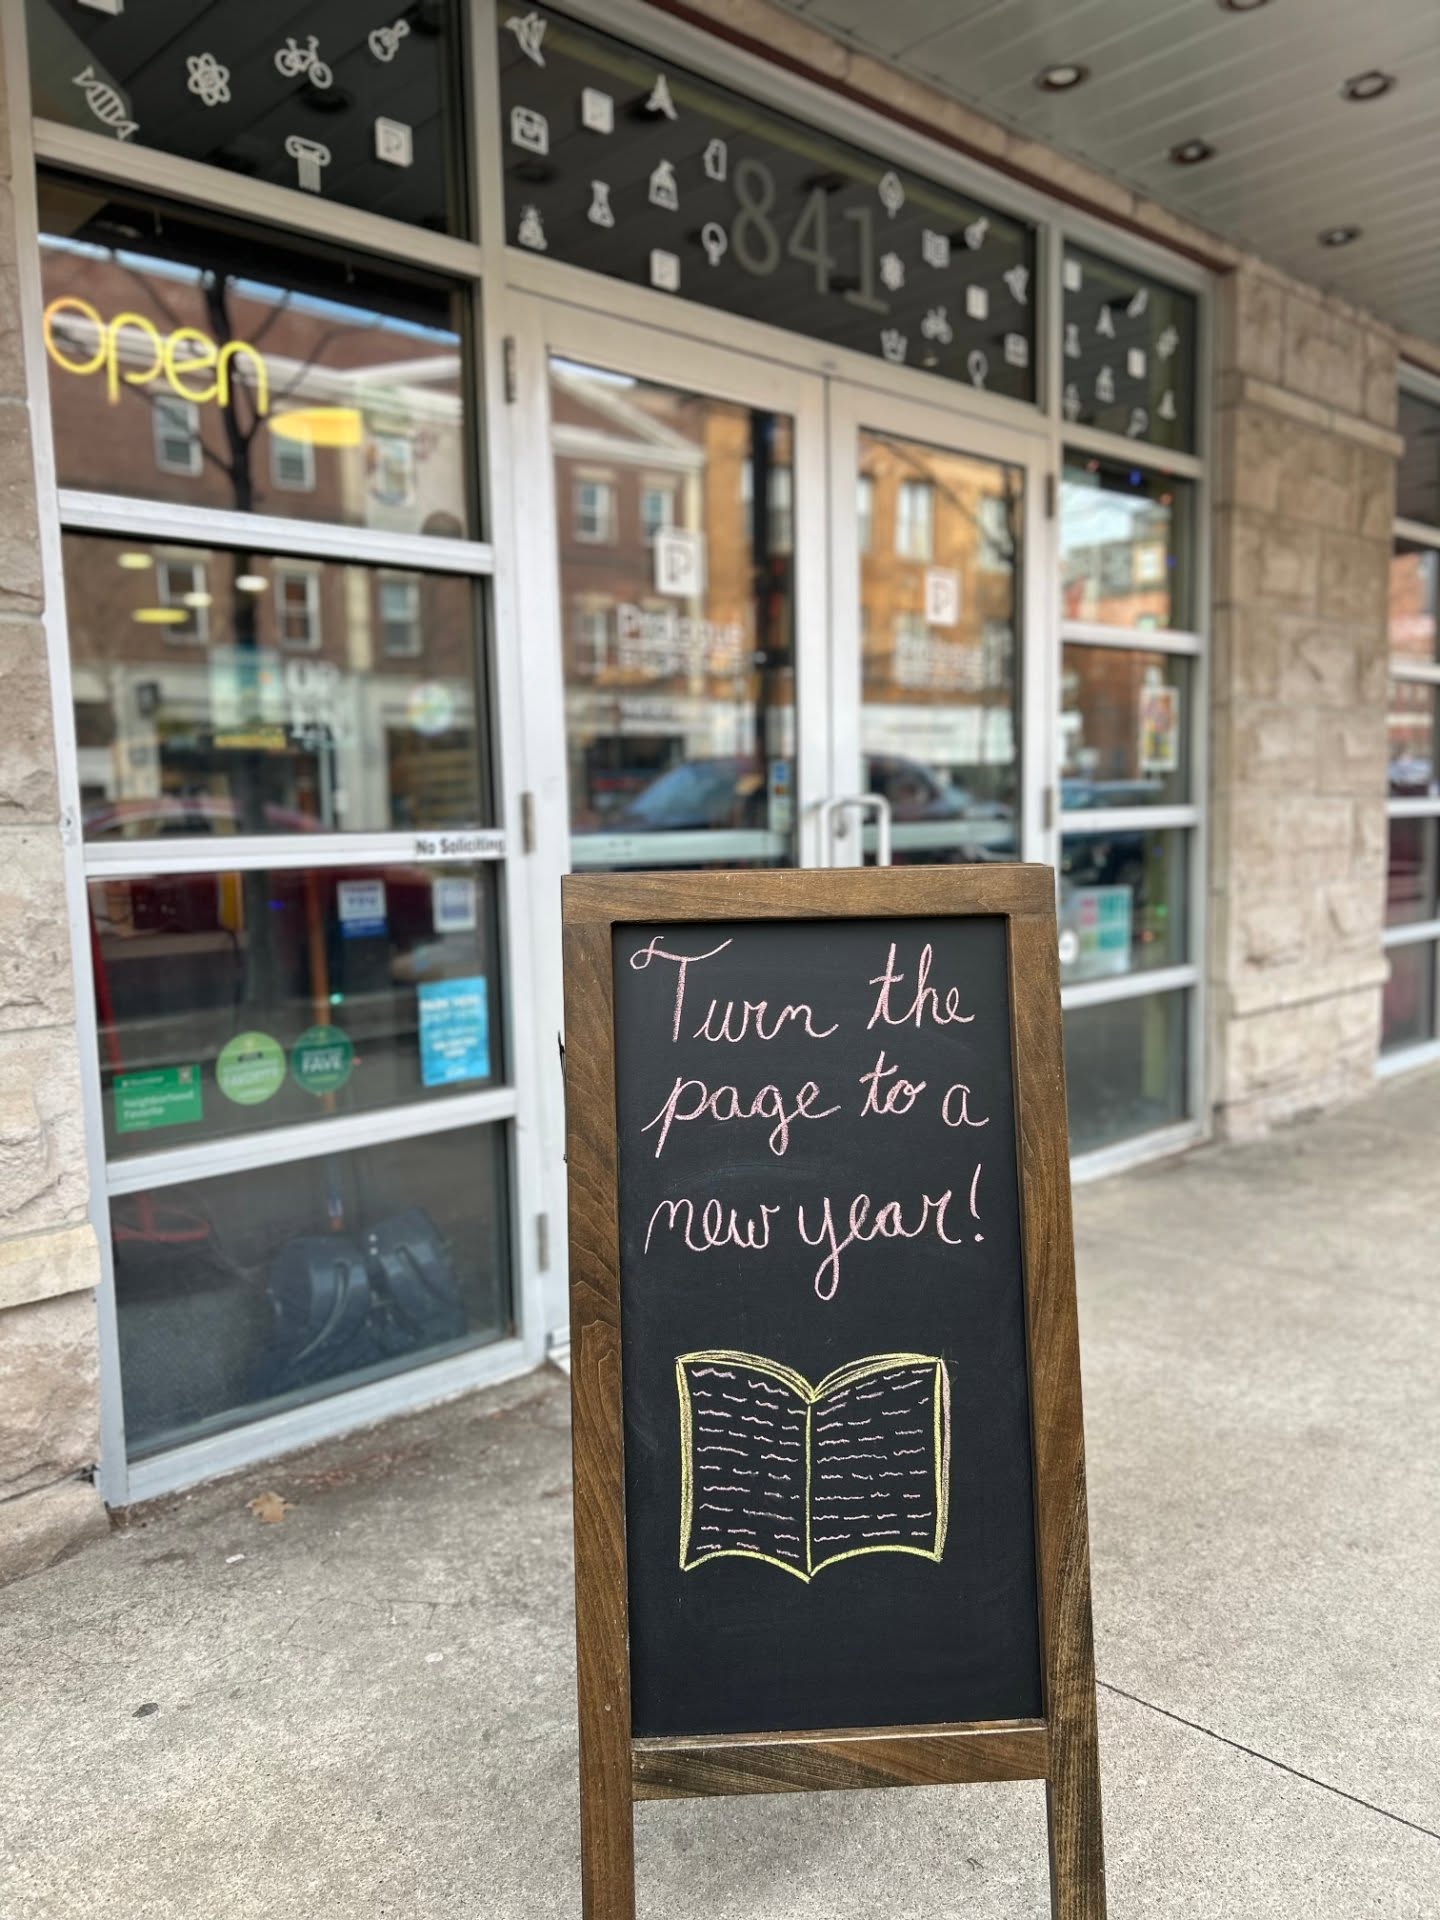 841
open
P
Prologue
Bookshop
No Soliciting
Neighborhood
Favorite
FAVE
Turn the
page to a
new year!